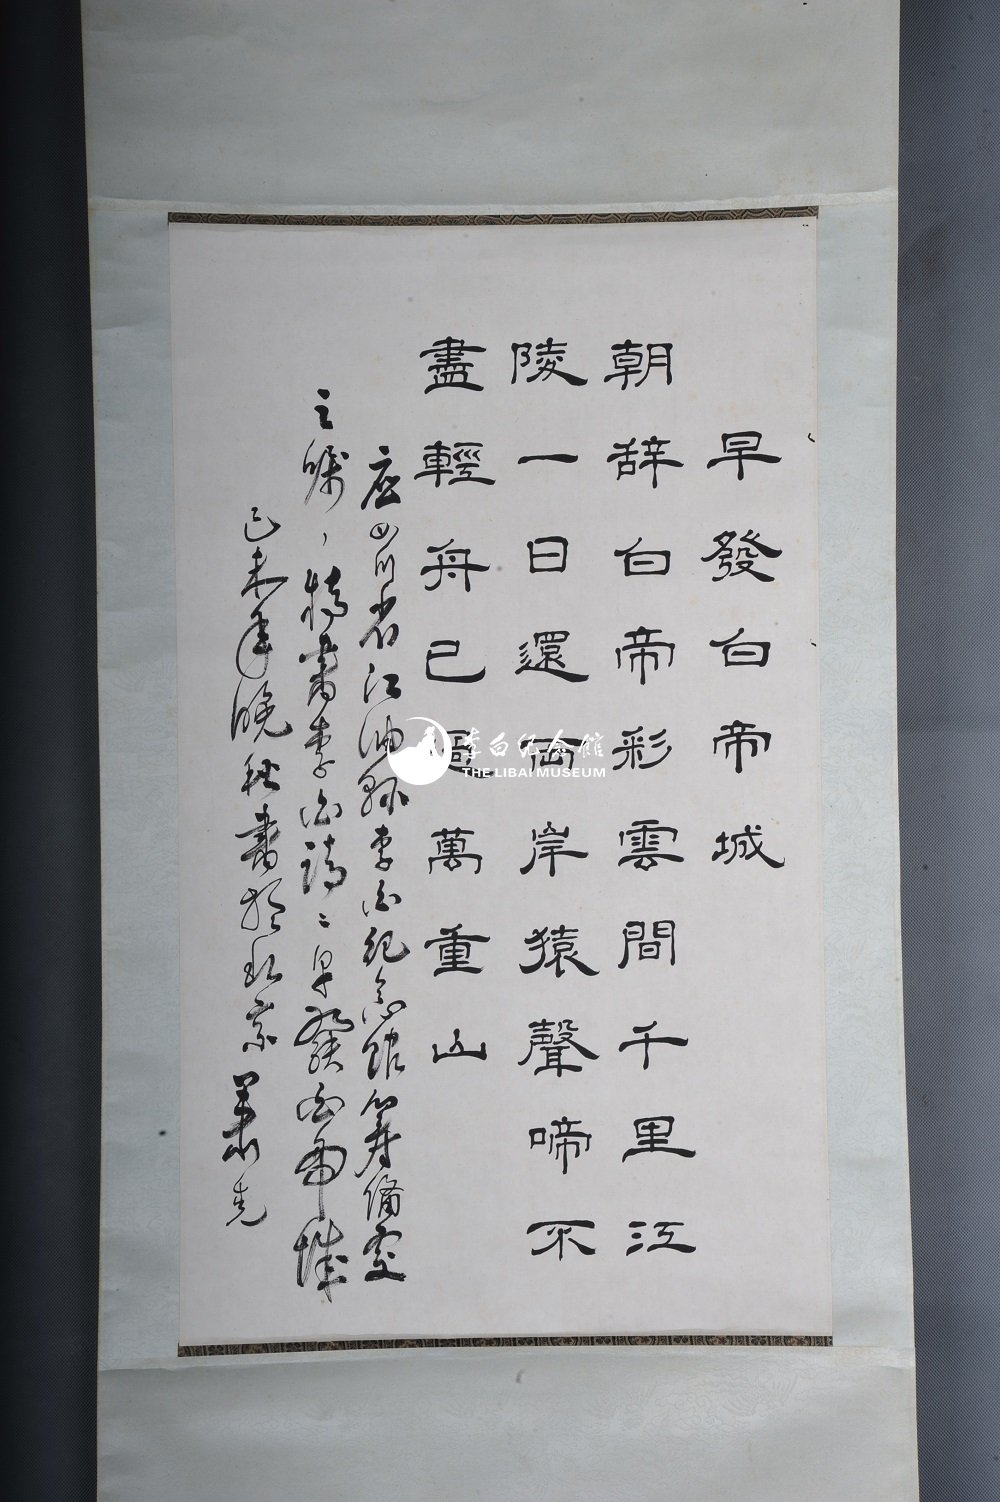 早發白帝城
朝辞白帝彩雲間千里江
陵一日還两岸猿聲啼不
盡輕舟已過萬重山
应四川省江油縣李白纪念馆筹備處
之嘱、特書李白詩早發白帝城
己未年晚秋書於北京 萧克
李白纪念館
THE LIBAI MUSEUM